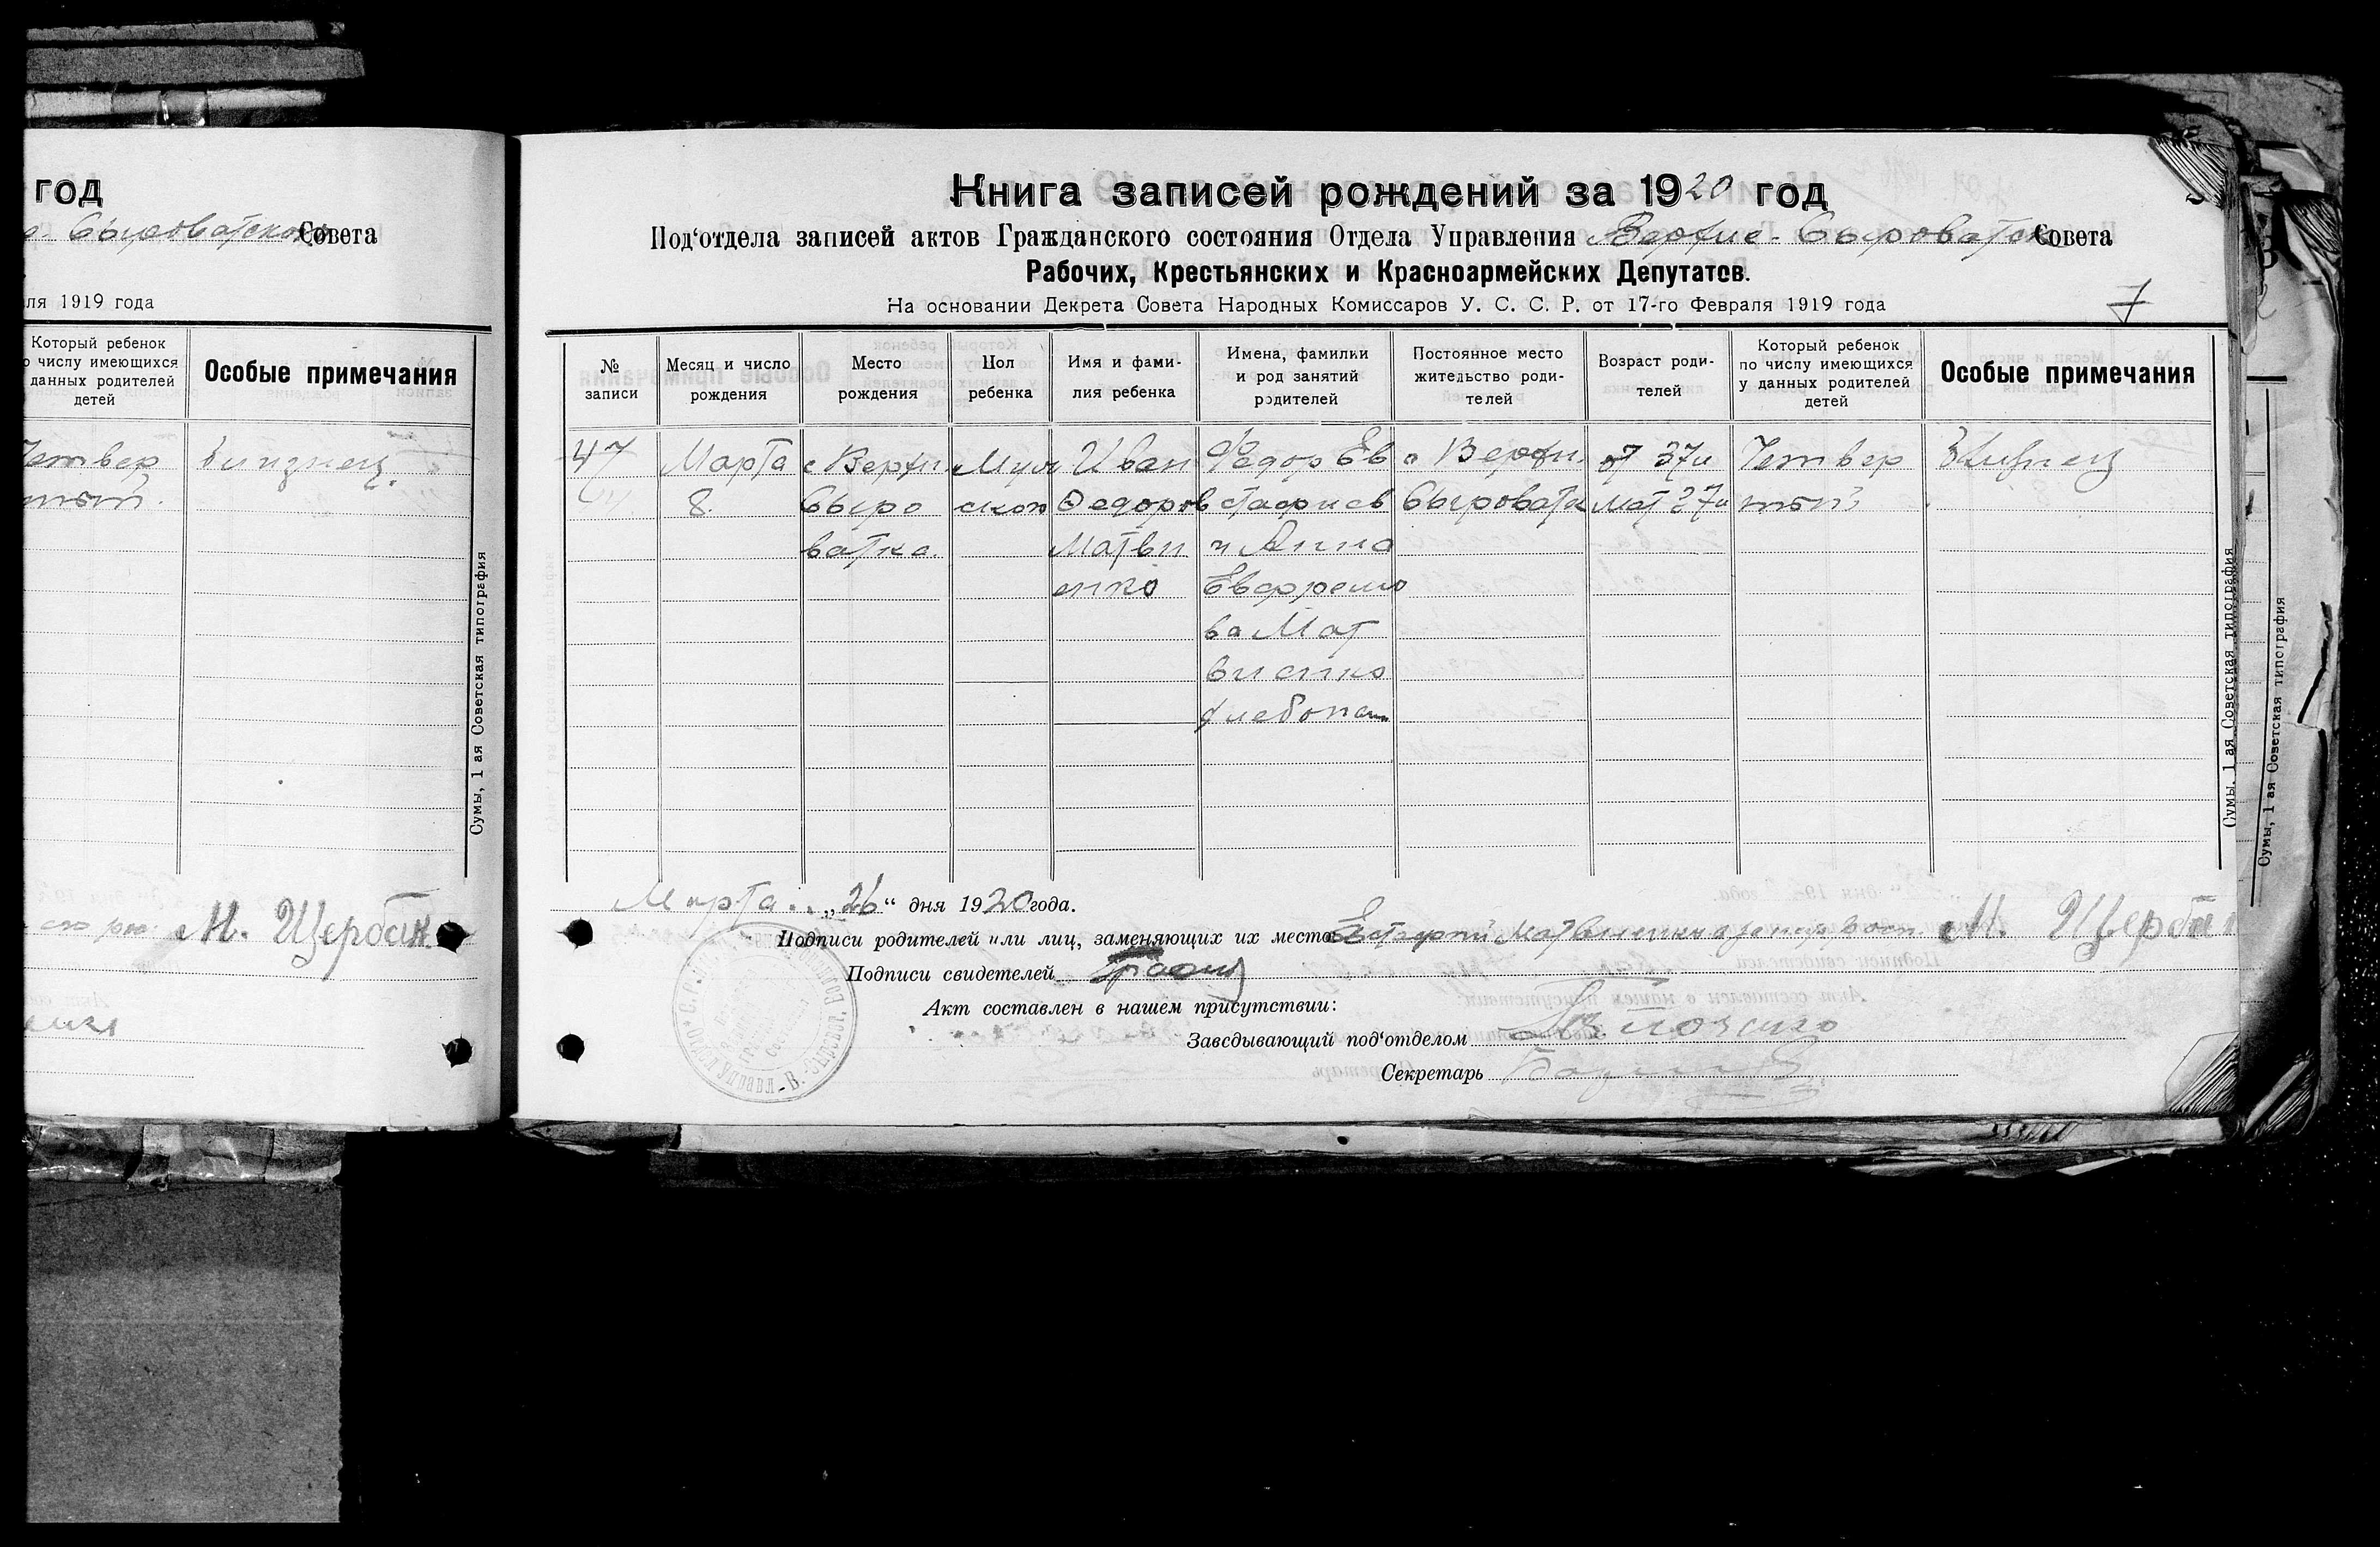 год
Сыроватского Совета
ля 1919 года
Который ребенок
о числу имеющихся
данных родителей
детей
Особые примечания
Четвер
тый.
Близнец.
Сумы, 1 ая Советская типография
М. Щербак
Книга записей рождений за 1920 год
Под'отдела записей актов Гражданского состояния Отдела Управления Верхне-Сыроватск Совета
Рабочих, Крестьянских и Красноармейских Депутатов.
На основании Декрета Совета Народных Комиссаров У. С. С. Р. от 17-го Февраля 1919 года
7
№
записи
Месяц и число
рождения
Место
рождения
Пол
ребенка
Имя и фами-
лия ребенка
Имена, фамилии
и род занятий
родителей
Постоянное место
жительство роди-
телей
Возраст роди-
телей
Который ребенок
по числу имеющихся
у данных родителей
детей
Особые примечания
47
Марта
8.
с Верхн.
Сыро
ватка.
Муж
ской
Иван
Федоров
Матви
енко
Федор Ев
стафиев
и Анна
Евфремо
ва Мат
виенко
хлебопаш
с Верхн.
Сыроватка
от 37 л
мат 37 л
Четвер
тый
Близнец
Сумы, 1 ая Советская типография
Сумы, 1 ая Советская типография
Марта „26“ дня 1920 года.
Подписи родителей или лиц, заменяющих их место М. Щербак
Подписи свидетелей
Акт составлен в нашем присутствии:
Заведывающий под'отделом
Секретарь